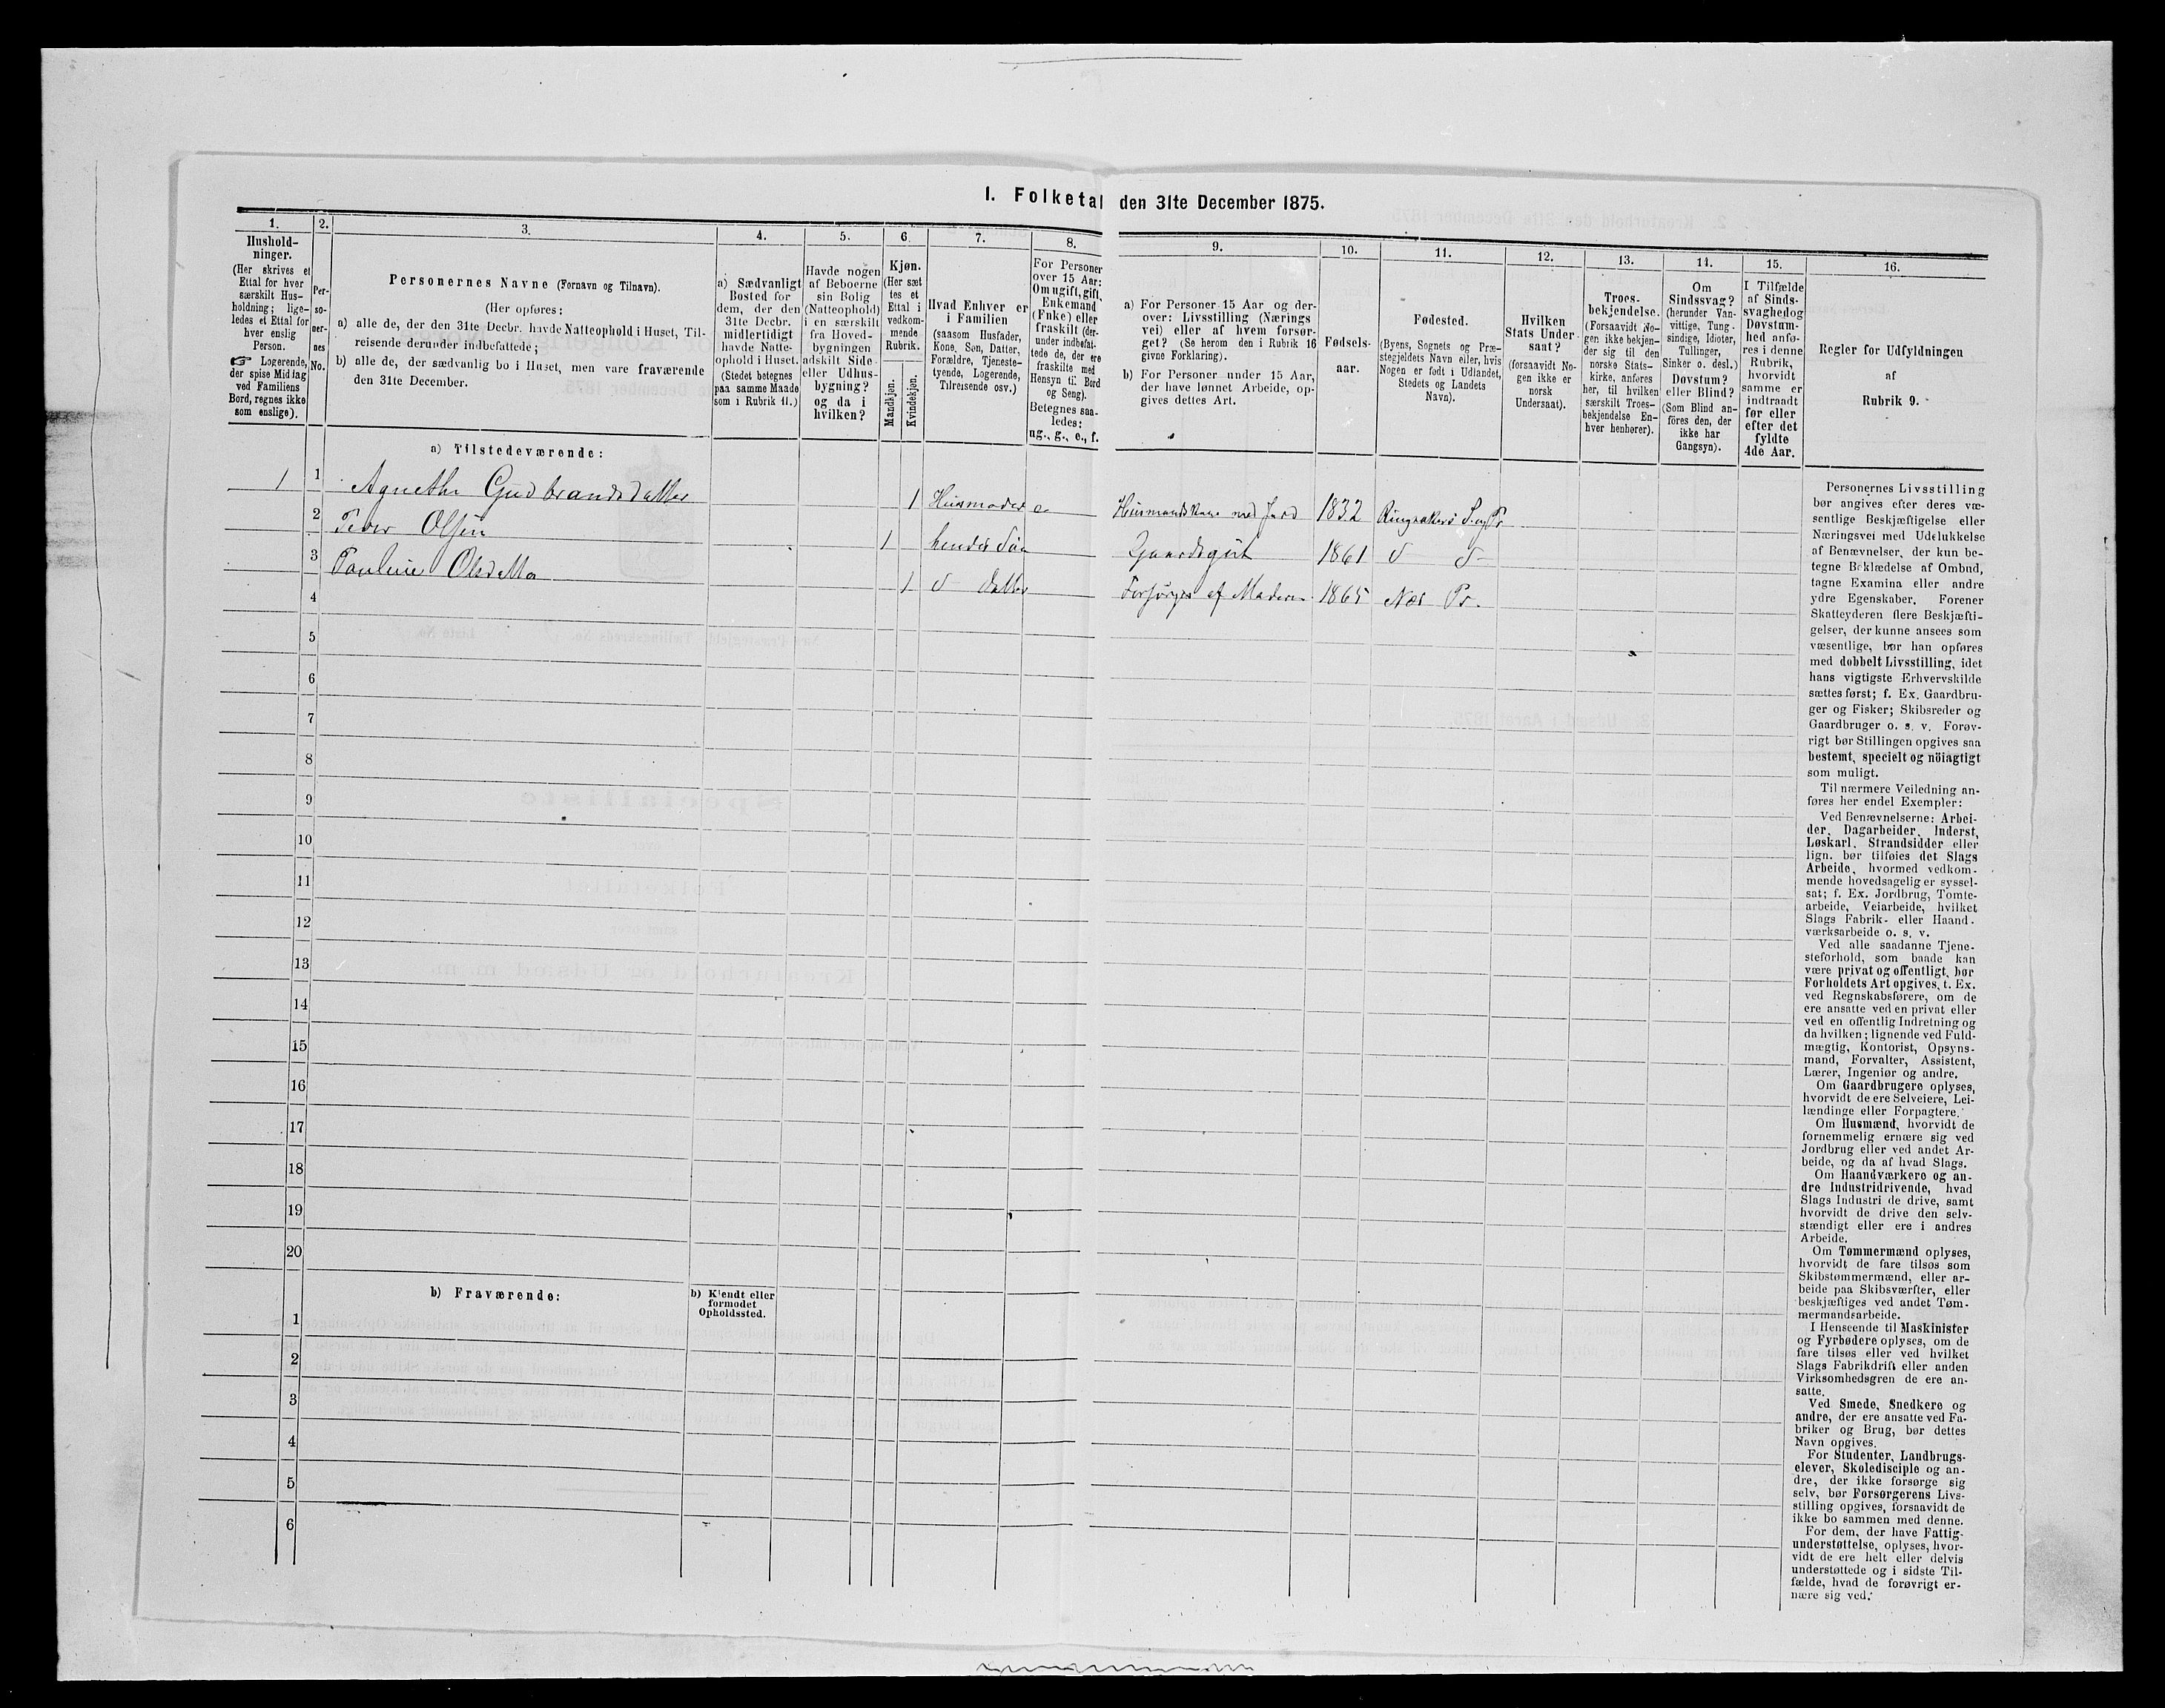 I. Folketal den 31te December 1875.
1.
Hushold-
ninger.
(Her skrives et
Ettal for hver
særskilt Hus-
holdning; lige-
ledes et Ettal for
hver enslig
Person.
☞ Logerende,
der spise Middag
ved Familiens
Bord, regnes ikke
som enslige).
2.
Per-
so-
ner-
nes
No.
3.
Personernes Navne (Fornavn og Tilnavn).
(Her opføres:
a) alle de, der den 31te Decbr. havde Natteophold i Huset, Til-
reisende derunder indbefattede;
b) alle de, der sædvanlig bo i Huset, men vare fraværende
den 31te December.
4.
a) Sædvanligt
Bosted for
dem, der den
31te Decbr.
midlertidigt
havde Natte-
ophold i Huset.
(Stedet betegnes
paa samme Maade
som i Rubrik 11.)
5.
Havde nogen
af Beboerne
sin Bolig
(Natteophold)
i en særskilt
fra Hoved-
bygningen
adskilt Side-
eller Udhus-
bygning?
og da i
hvilken?
6.
Kjøn.
(Her sæt
tes et
Ettal i
vedkom-
mende
Rubrik.
Mandkjøn.
Kvindekjøn.
7.
Hvad Enhver er
i Familien
(saasom Husfader,
Kone, Søn, Datter,
Forældre, Tjeneste-
tyende, Logerende,
Tilreisende osv.)
8.
For Personer
over 15 Aar:
Om ugift, gift,
Enkemand
(Enke) eller
fraskilt (der-
under indbefat-
tede de, der ere
fraskilte med
Hensyn til Bord
og Seng).
Betegnes saa-
ledes:
ug., g., e., f.
9.
a) For Personer 15 Aar og der-
over: Livsstilling (Nærings
vei) eller af hvem forsør-
get? (Se herom den i Rubrik 16
givne Forklaring).
b) For Personer under 15 Aar,
der have lønnet Arbeide, op-
gives dettes Art.
10.
Fødsels-
aar.
11.
Fødested.
(Byens, Sognets og Præ-
stegjeldets Navn eller, hvis
Nogen er født i Udlandet,
Stedets og Landets
Navn).
12.
Hvilken
Stats Under-
saat?
(forsaavidt No-
gen ikke er
norsk
Undersaat).
13.
Troes-
bekjendelse.
(Forsaavidt No-
gen ikke bekjen-
der sig til den
norske Stats-
kirke, anføres
her, til hvilken
særskilt Troes-
bekjendelse En-
hver henhører).
14.
Om
Sindssvag?
(herunder Van-
vittige, Tung-
sindige, Idioter,
Tullinger,
Sinker o. desl.)
Døvstum?
eller Blind?
(Som Blind an-
föres den, der
ikke har
Gangsyn).
15.
I Tilfælde
af Sinds-
svaghed og
Døvstum-
hed anfø-
res i denne
Rubrik,
hvorvidt
samme er
indtraadt
før eller
efter det
fyldte
4de Aar.
16.
Regler for Udfyldningen
af
Rubrik 9.
a) Tilstedeværende:
1 1 Agnethe Gudbrandsdatter 1 Husmoder e Husmandskone med Jord 1832 Ringsakers S. og Pr
2 Peder Olsen 1 hendes Søn Gaardsgut 1861
3 Pauline Olsdatter 1 Datter Forsørges af Moderen 1865 Næs Pr.
4
5
6
7
8
9
10
11
12
13
14
15
16
17
18
19
20
b) Fraværende:
b) Kjendt eller
formodet
Opholdssted.
1
2
3
4
5
6
Personernes Livsstilling
bør angives efter deres væ-
sentlige Beskjæftigelse eller
Næringsvei med Udelukkelse
af Benævnelser, der kun be-
tegne Beklædelse af Ombud,
tagne Examina eller andre
ydre Egenskaber. Forener
Skatteyderen flere Beskjæfti-
gelser, der kunne ansees som
væsentlige, bør han opføres
med dobbelt Livsstilling, idet
hans vigtigste Erhvervskilde
sættes først; f. Ex. Gaardbru-
ger og Fisker; Skibsreder og
Gaardbruger o. s. v. Forøv-
rigt bør Stillingen opgives saa
bestemt, specielt og nöiagtigt
som muligt.
Til nærmere Veiledning an-
føres her endel Exempler:
Ved Benævnelserne: Arbei-
der, Dagarbeider, Inderst,
Løskarl, Strandsidder eller
lign. bør tilføies det Slags
Arbeide, hvormed vedkom-
mende hovedsagelig er syssel-
sat; f. Ex. Jordbrug, Tomte-
arbeide, Veiarbeide, hvilket
Slags Fabrik- eller Haand-
værksarbeide o. s. v.
Ved alle saadanne Tjene-
steforhold, som baade kan
være privat og offentligt, bør
Forholdets Art opgives, f. Ex.
ved Regnskabsførere, om de
ere ansatte ved en privat eller
ved en offentlig Indretning og
da hvilken; lignende ved Fuld-
mægtig, Kontorist, Opsyns-
mand, Forvalter, Assistent,
Lærer, Ingeniør og andre.
Om Gaardbrugere oplyses,
hvorvidt de ere Selveiere, Lei-
lændinge eller Forpagtere.
Om Husmænd, hvorvidt de
fornemmelig ernære sig ved
Jordbrug eller ved andet Ar-
beide, og da af hvad Slags.
Om Haandværkere og an-
dre Industridrivende, hvad
Slags Industri de drive, samt
hvorvidt de drive den selv-
stændigt eller ere i andres
Arbeide.
Om Tømmermænd oplyses,
hvorvidt de fare tilsøs som
Skibstømmermænd, eller ar-
beide paa Skibsværfter, eller
beskjæftiges ved andet Tøm-
mermandsarbeide.
I Henseende til Maskinister
og Fyrbødere oplyses, om de
fare tilsøs eller ved hvilket
Slags Fabrikdrift eller anden
Virksomhedsgren de ere an-
satte.
Ved Smede, Snedkere og
andre, der ere ansatte ved Fa-
briker og Brug, bør dettes
Navn opgives.
For Studenter, Landbrugs-
elever, Skoledisciple og an-
dre, der ikke forsørge sig
selv, bør Forsørgerens Livs-
stilling opgives, forsaavidt de
ikke bo sammen med denne.
For dem, der have Fattig-
understøttelse, oplyses, hvor-
vidt de ere helt eller delvis
understøttede og i sidste Til-
fælde, hvad de forøvrigt er-
nære sig ved.